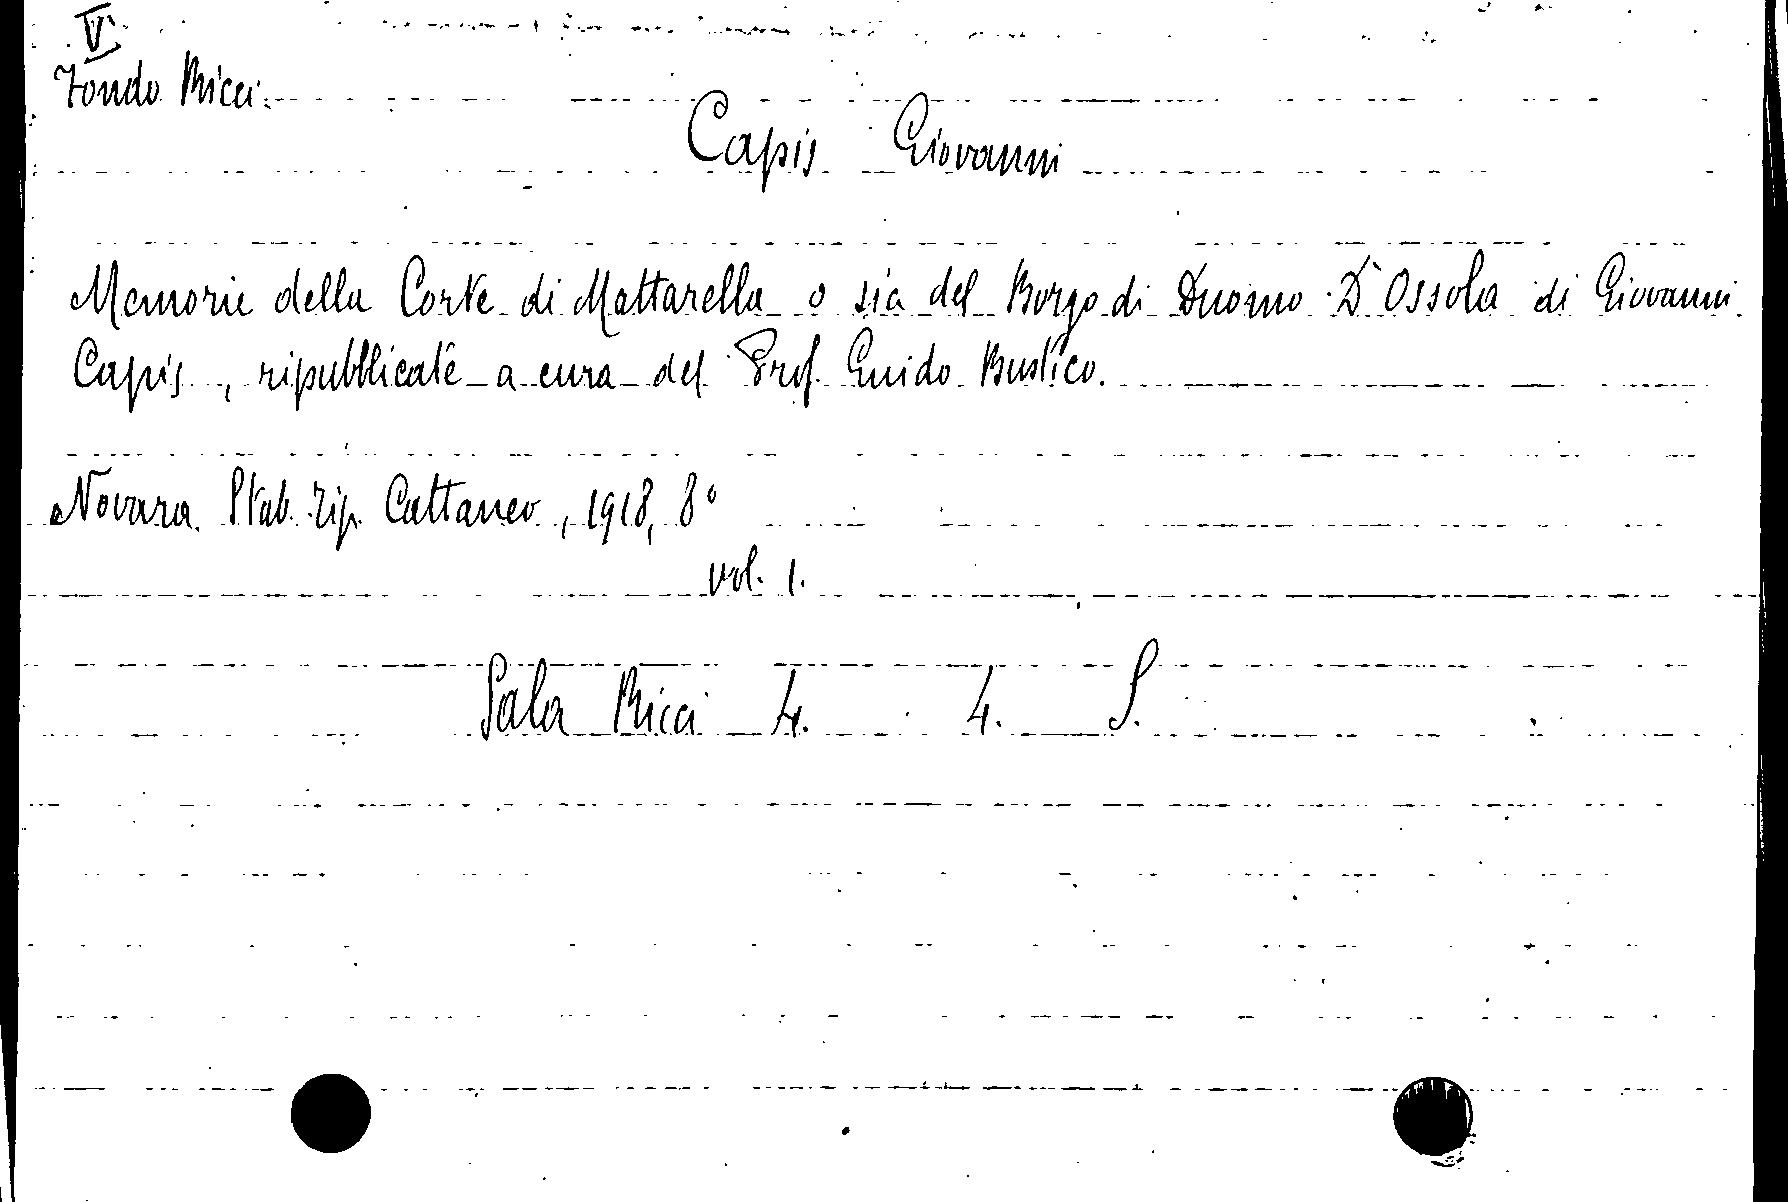 V
Fondo Ricci.
Capis Giovanni
Memorie della Corte di Mattarella o sia del Borgo di Duomo D'Ossola di Giovanni
Capis, ripubblicate a cura del Prof. Guido Bustico.
Novara. Stab. Tip. Cattaneo, 1918, 8°
vol. 1.
Sala Ricci 4. 4. S.